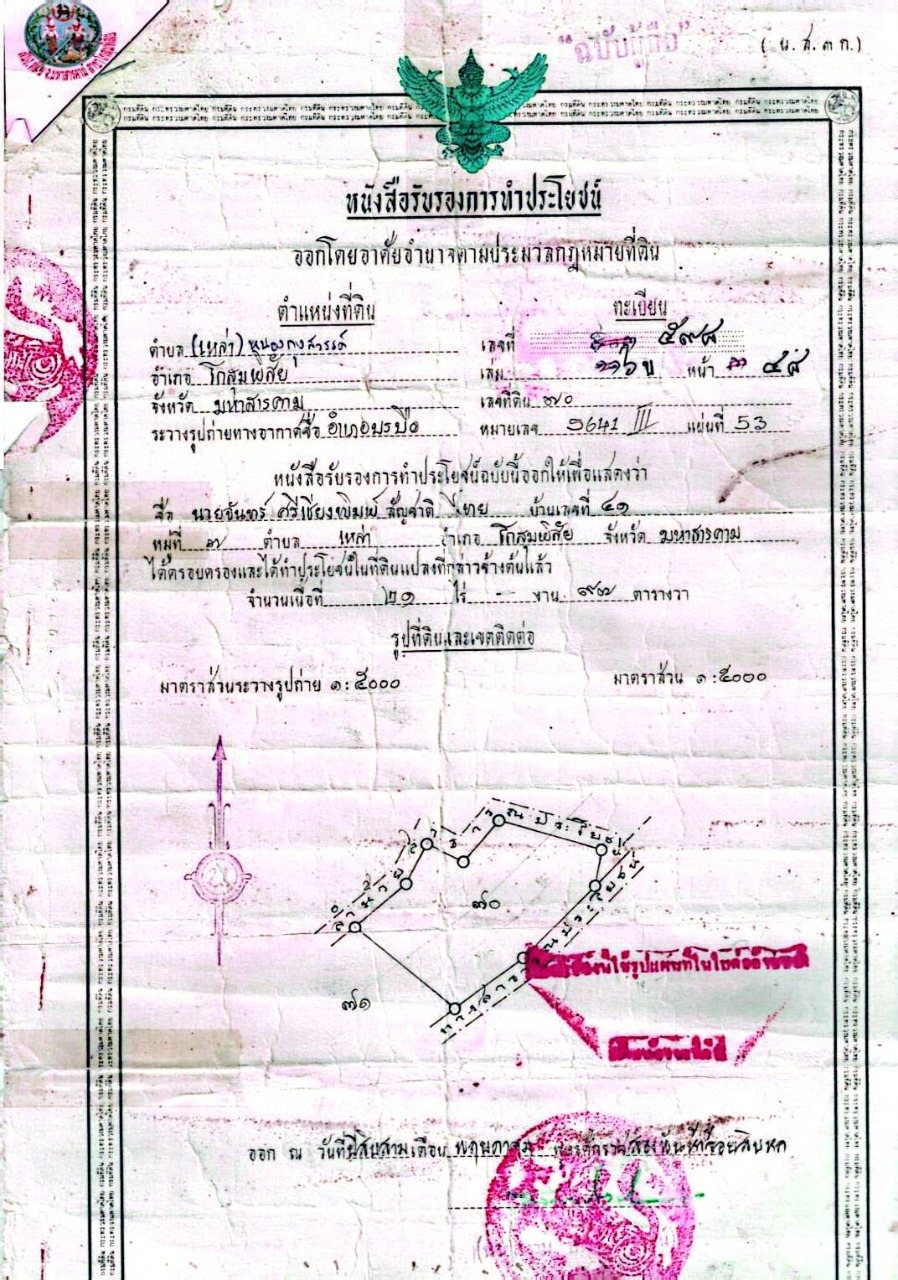 "ฉบับผู้ถือ"
( น.ส.๓ ก.)
หนังสือรับรองการทำประโยชน์
ออกโดยอาศัยอำนาจตามประมวลกฎหมายที่ดิน
ตำแหน่งที่ดิน
ทะเบียน
ตำบล (เหล่า) หนองกุงสวรรค์ เลขที่ ๕๙๘
อำเภอ โกสุมพิสัย เล่ม ๖ข หน้า ๔๘
จังหวัด มหาสารคาม เลขที่ดิน ๗๐
ระวางรูปถ่ายทางอากาศชื่อ อำเภอบรบือ หมายเลข 5641 III แผ่นที่ 53
หนังสือรับรองการทำประโยชน์ฉบับนี้ออกให้เพื่อแสดงว่า
ชื่อ นายจันทร์ ศรีเชียงพิมพ์ สัญชาติ ไทย บ้านเลขที่ ๔๑
หมู่ที่ ๗ ตำบล เหล่า อำเภอ โกสุมพิสัย จังหวัด มหาสารคาม
ได้ครอบครองและได้ทำประโยชน์ในที่ดินแปลงที่กล่าวข้างต้นแล้ว
จำนวนเนื้อที่ ๒๑ ไร่ - งาน ๙๗ ตารางวา
รูปที่ดินและเขตติดต่อ
มาตราส่วนระวางรูปถ่าย ๑ : ๕๐๐๐ มาตราส่วน ๑ : ๕๐๐๐
ลำห้วยสาธารณประโยชน์
๗๐
ทางสาธารณประโยชน์
๗๑
ออก ณ วันที่ยี่สิบสาม เดือน พฤษภาคม พุทธศักราช สองพันห้าร้อยสิบหก